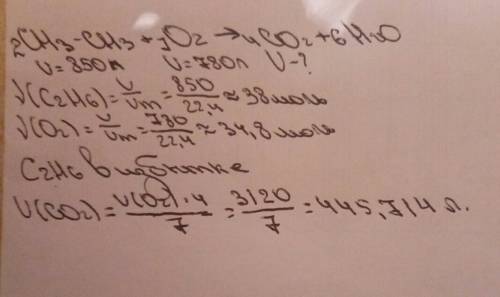 2CH3-CH3 + 7O2 → 4CO2 + 6H2O
V = 850л V = 780л V - ?
ν(C2H6) = V/Vm = 850/22,4 ≈ 38 моль
ν(O2) = V/Vm = 780/22,4 ≈ 34,8 моль
C2H6 в избытке
V(CO2) = V(O2)·4/7 = 3120/7 = 445,714 л.